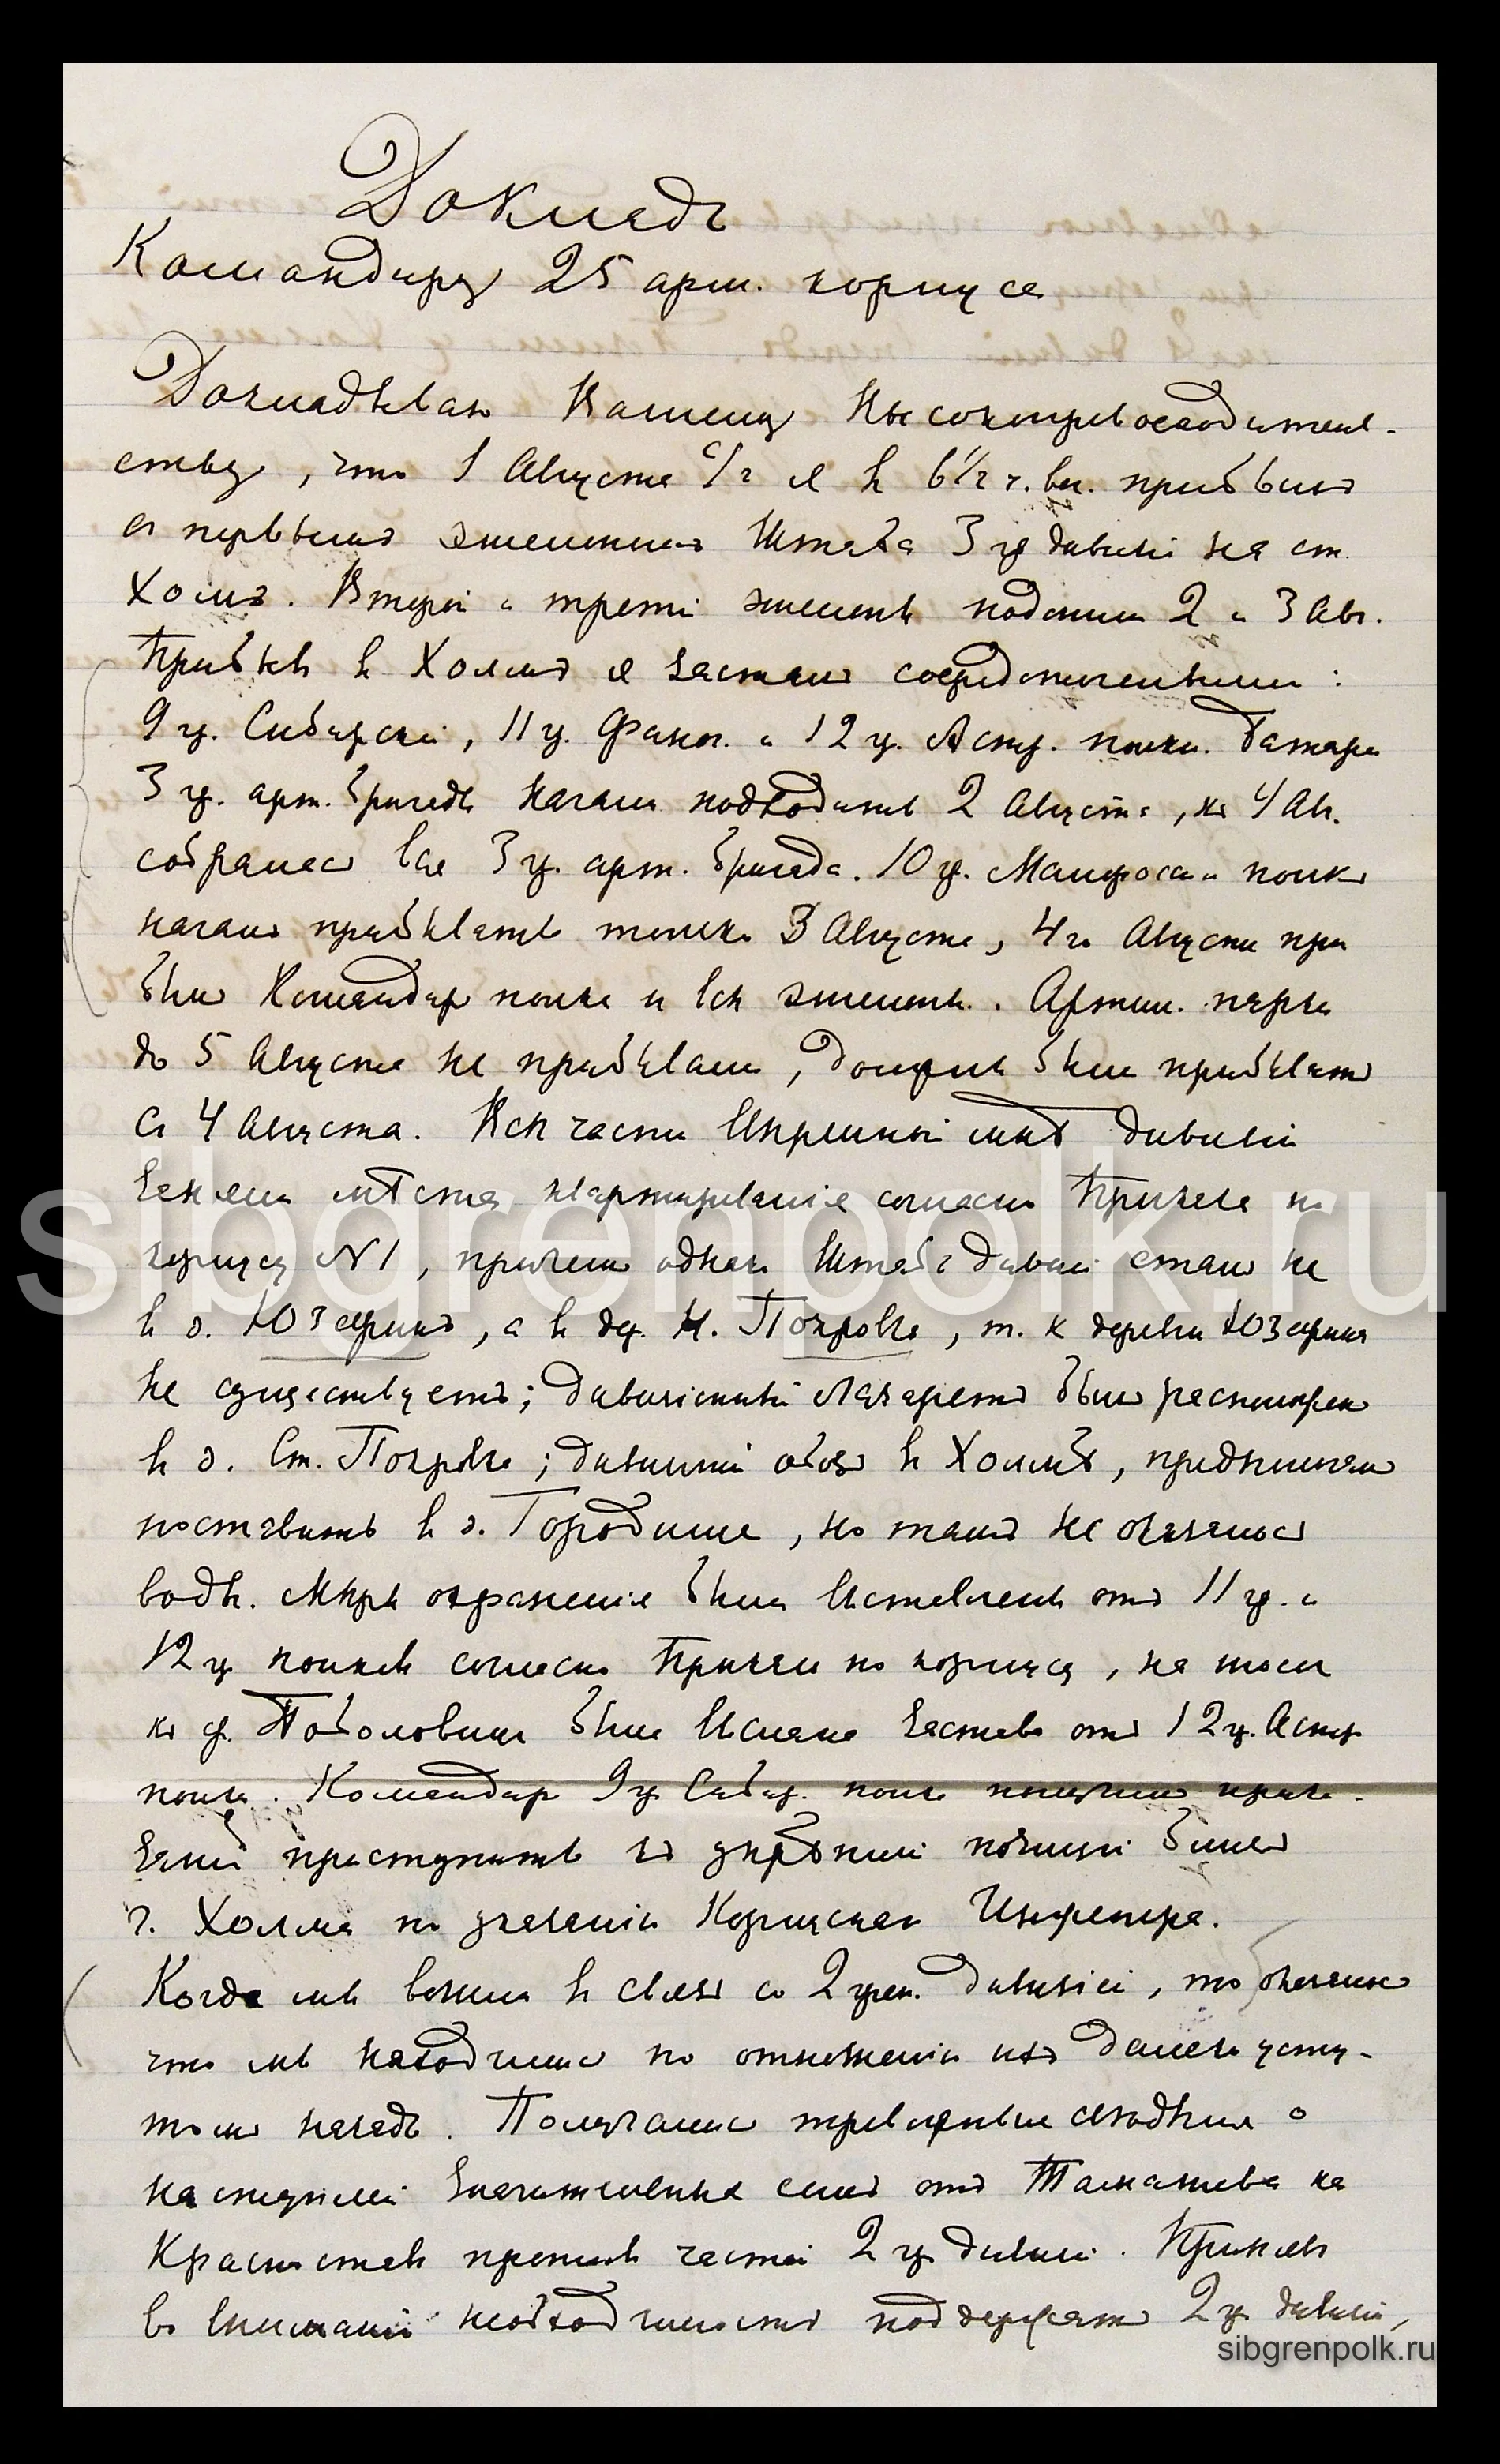 Докладъ
Командиру 25 арм. корпуса
Докладываю Вашему Высокопревосходитель-
ству, что 1 Августа с/г я въ 6 1/2 ч. веч. прибылъ
съ первымъ эшелономъ Штаба 3 гр. дивизіи на ст.
Холмъ. Второй и третій эшелоны подошли 2 и 3 Авг.
Прибывъ въ Холмъ я засталъ сосредоточенными:
9 гр. Сибирскій, 11 гр. Фанаг. и 12 гр. Астр. полки. Батареи
3 гр. арт. бригады начали подходить 2 Августа, къ 4 Авг.
собралась вся 3 гр. арт. бригада. 10 гр. Малоросс. полкъ
началъ прибывать только 3 Августа, 4го Августа при
былъ Командиръ полка и всѣ эшелоны. Артил. парки
до 5 Августа не прибывали, должны были прибывать
съ 4 Августа. Всѣ части ввѣренной мнѣ дивизіи
заняли мѣста квартированія согласно Приказа по
корпусу №1, причемъ однако Штабъ дивизіи сталъ не
въ д. Юзефинъ, а въ дер. Н. Покровка, т. к деревни Юзефинъ
не существуетъ; дивизіонный лазаретъ былъ расположенъ
въ д. Ст. Покровка; дивизіонный обозъ въ Холмѣ, предполагали
поставить въ д. Городище, но тамъ не оказалось
воды. Мѣры охраненія были выставлены отъ 11 гр. и
12 гр. полковъ согласно Приказа по корпусу, на шоссе
къ ф. была выслана застава отъ 12 гр. Астр.
полка. Командиръ 9 гр. Сибир. полка получилъ прика-
заніе приступить къ укрѣпленію позиціи близъ
г. Холма по указанію Корпуснаго Инженера.
Когда мы вошли въ связь со 2 грен. дивизіей, то оказалось
что мы находимся по отношенію ихъ далеко усту-
помъ назадъ. Получались тревожныя свѣдѣнія о
наступленіи значительныхъ силъ отъ Томашева на
Красноставъ противъ частей 2 гр. дивизіи. Принявъ
во вниманіе необходимость поддержать 2 гр. дивизію,
sibgrenpolk.ru
sibgrenpolk.ru